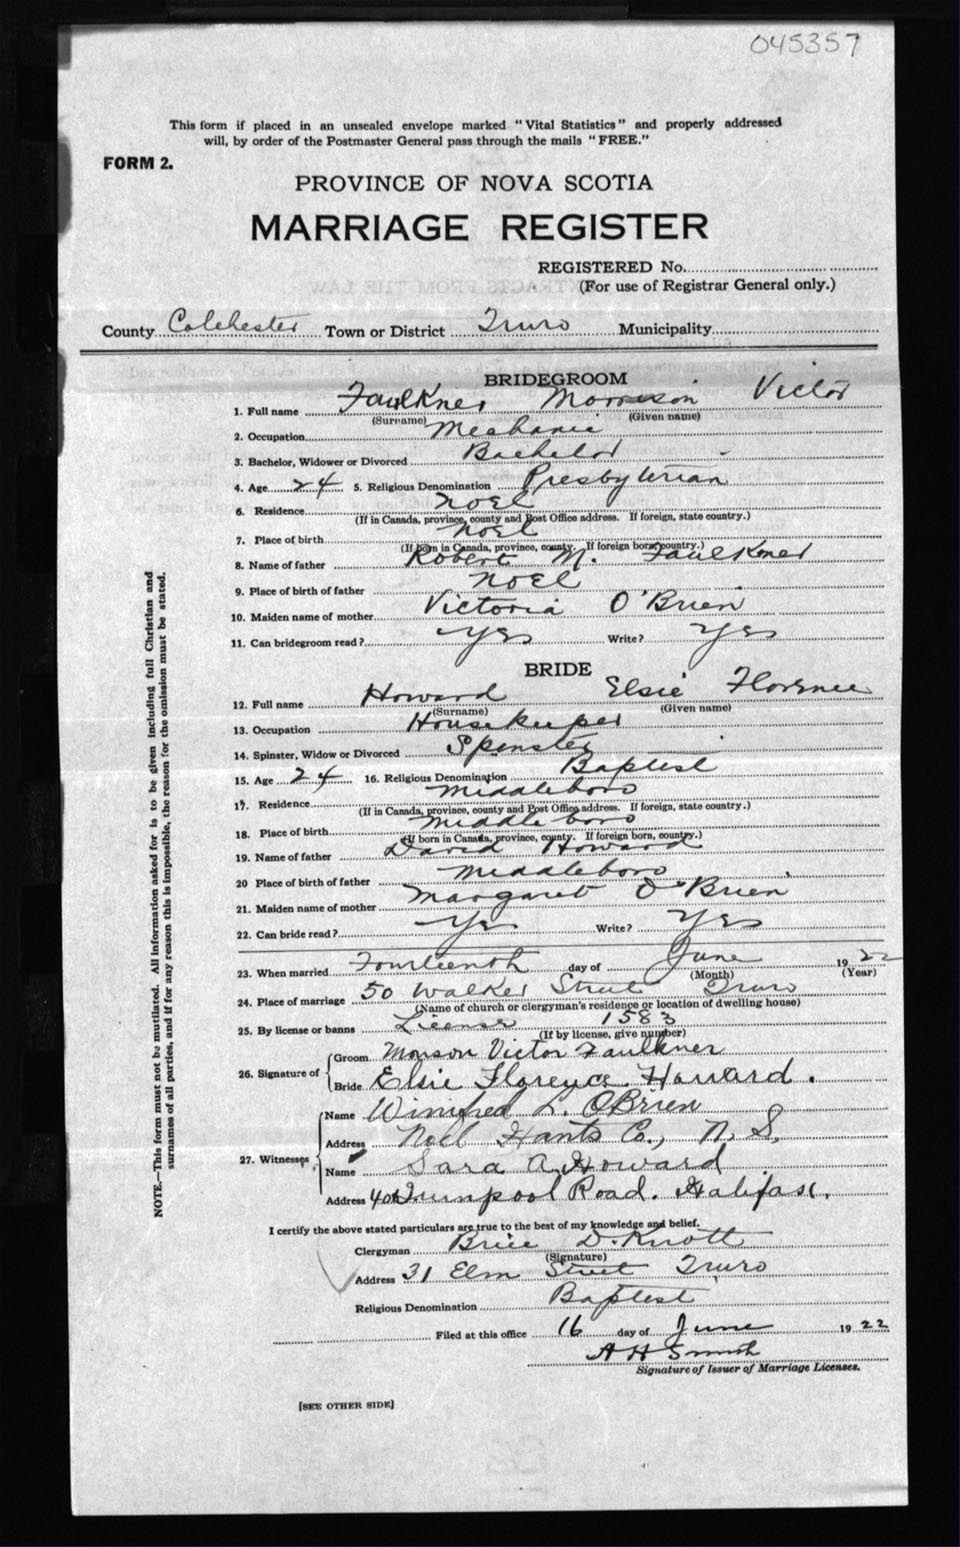 045357
This form if placed in an unsealed envelope marked "Vital Statistics" and properly addressed
will, by order of the Postmaster General pass through the mails "FREE."
FORM 2.
PROVINCE OF NOVA SCOTIA
MARRIAGE REGISTER
REGISTERED No.
(For use of Registrar General only.)
County Colchester Town or District Truro Municipality
BRIDEGROOM
1. Full name Faulkner Morrison Victor
(Surname) (Given name)
2. Occupation Mechanic
3. Bachelor, Widower or Divorced Bachelor
4. Age 24 5. Religious Denomination Presbyterian
6. Residence Noel
(If in Canada, province, county and Post Office address. If foreign, state country.)
7. Place of birth Noel
(If born in Canada, province, county. If foreign born, country.)
8. Name of father Robert M. Faulkner
9. Place of birth of father Noel
10. Maiden name of mother Victoria O'Brien
11. Can bridegroom read? Yes Write? Yes
BRIDE
12. Full name Howard Elsie Florence
(Surname) (Given name)
13. Occupation Housekeeper
14. Spinster, Widow or Divorced Spinster
15. Age 24 16. Religious Denomination Baptist
17. Residence Middleboro
(If in Canada, province, county and Post Office address. If foreign, state country.)
18. Place of birth Middleboro
(If born in Canada, province, county. If foreign born, country.)
19. Name of father David Howard
20 Place of birth of father Middleboro
21. Maiden name of mother Margaret O'Brien
22. Can bride read? Yes Write? Yes
23. When married Fourteenth day of June 1922
(Month) (Year)
24. Place of marriage 50 Walker Street Truro
(Name of church or clergyman's residence or location of dwelling house)
25. By license or banns License 1583
(If by license, give number)
26. Signature of
Groom Morison Victor Faulkner
Bride Elsie Florence Howard.
27. Witnesses
Name Winifred L. OBrien
Address Noel Hants Co., N.S.
Name Sara A. Howard
Address Quinpool Road. Halifax.
I certify the above stated particulars are true to the best of my knowledge and belief.
Clergyman Brice D. Knott
(Signature)
Address 31 Elm Street Truro
Religious Denomination Baptist
Filed at this office 16 day of June 1922
A H Smith
Signature of Issuer of Marriage Licenses.
[SEE OTHER SIDE]
NOTE.—This form must not be mutilated. All information asked for is to be given including full Christian and
surnames of all parties, and if for any reason this is impossible, the reason for the omission must be stated.